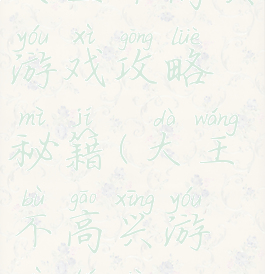 yóu xì gōng lüè
游戏攻略
mì jí dà wáng
秘籍(大王
bù gāo xīng yóu
不高兴游